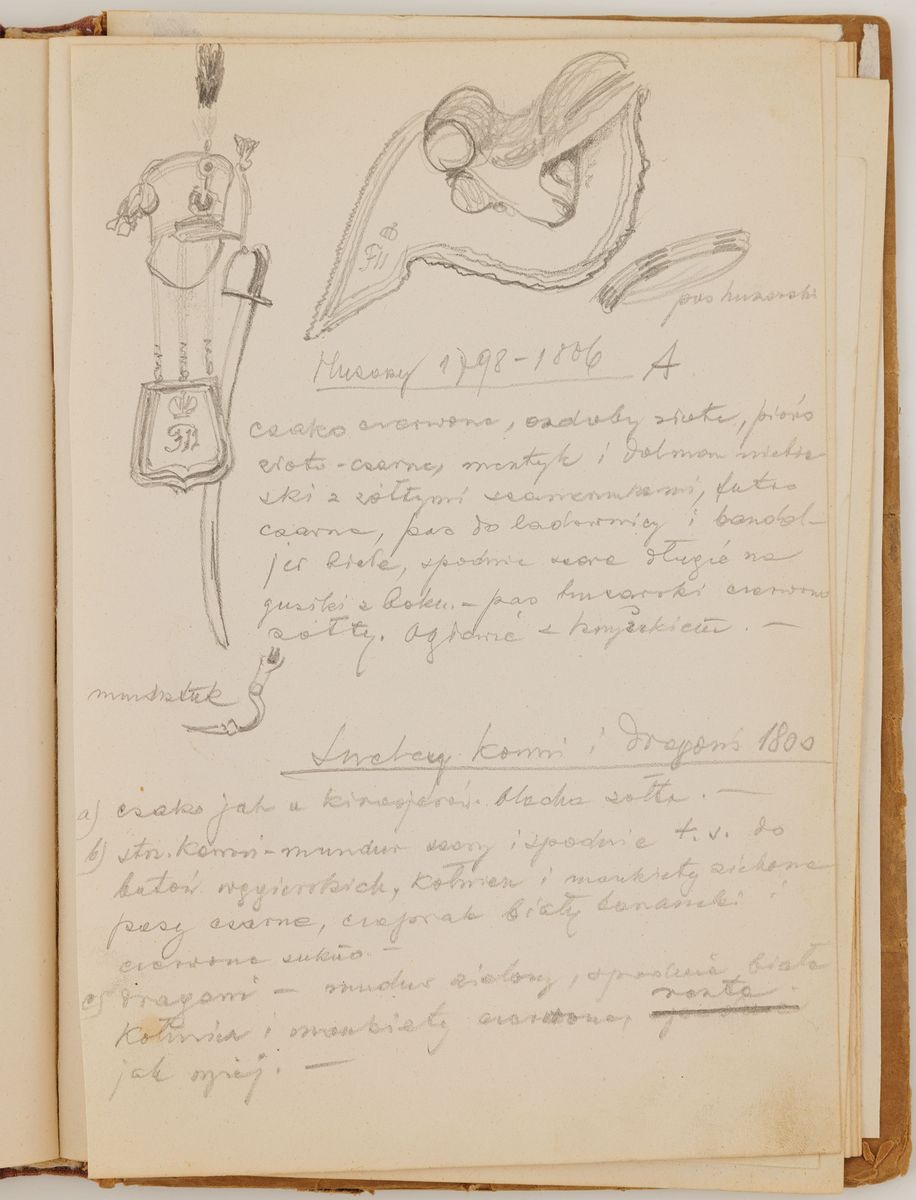 FII
pas huzarski
Huzary 1798-1806 A
FII
czako czerwone, ozdoby złote, pióro
złoto-czarne, mentyk i dolman niebie
ski z żółtymi szamerunkami, futro
czarne, pas do ładownicy i bandol-
jer białe, spodnie szare długie na
guziki z boku. - pas huzarski czerwono
żółty. Ogłowie z księżycem. -
munsztuk
Strzelcy konni i dragoni 1800
a) czako jak u kirasjerów. blacha żółta. -
b) strz. konni - mundur szary i spodnie t. s. do
butów węgierskich, kołnierz i mankiety zielone
pasy czarne, czaprak biały baranski i
czerwone sukno -
c) dragoni - mudur zielony, spodnie białe
kołnierz i mankiety czerwone, reszta
jak wyżej. -